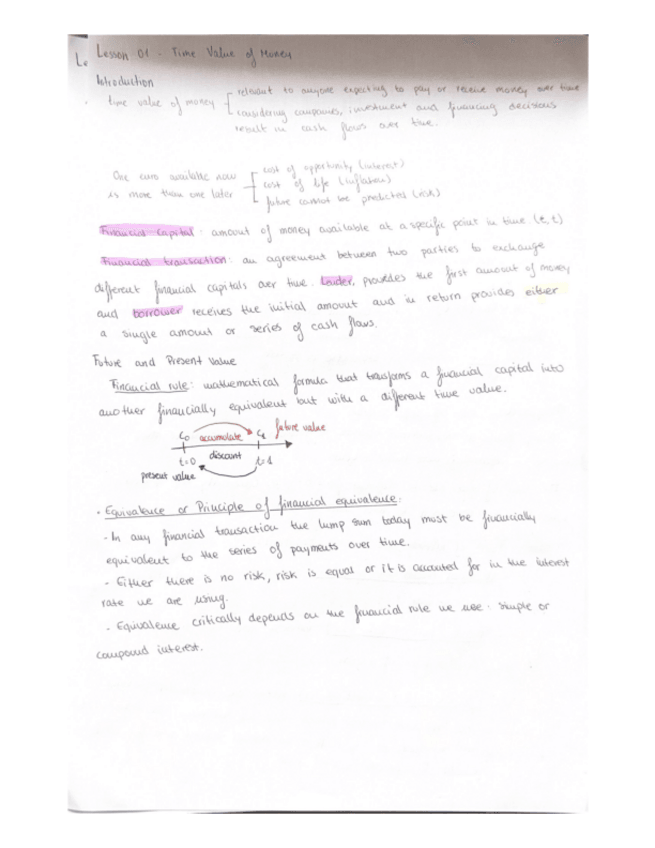 Le
Lesson 01 - Time Value of Money
Introduction
time value of money
relevant to anyone expecting to pay or receive money over time
considering companies, investment and financing decisions
result in cash flows over time.
One euro available now
is more than one later
cost of opportunity (interest)
cost of life (inflation)
future cannot be predicted (risk)
Financial capital: amount of money available at a specific point in time (€, t)
Financial transaction: an agreement between two parties to exchange
different financial capitals over time. Lender, provides the first amount of money
and borrower receives the initial amount and in return provides either
a single amount or series of cash flows.
Future and Present Value
Financial rule: mathematical formula that transforms a financial capital into
another financially equivalent but with a different time value.
C0 accumulate C1 future value
t=0 discount t=1
present value
· Equivalence or Principle of financial equivalence:
- In any financial transaction the lump sum today must be financially
equivalent to the series of payments over time.
- Either there is no risk, risk is equal or it is accounted for in the interest
rate we are using.
- Equivalence critically depends on the financial rule we use: simple or
compound interest.